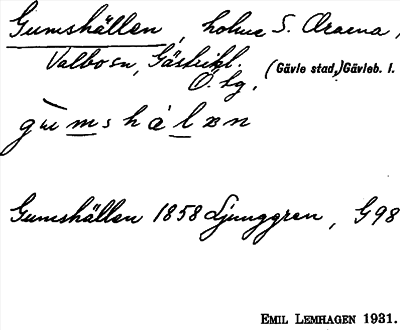 Gumshällen, holme S. Oraena,
Valbo sn, Gästrikl. (Gävle stad,) Gävleb. l.
Ö. lg.
gumshälen
Gumshällen 1858 Ljunggren, G98
EMIL LEMHAGEN 1931.